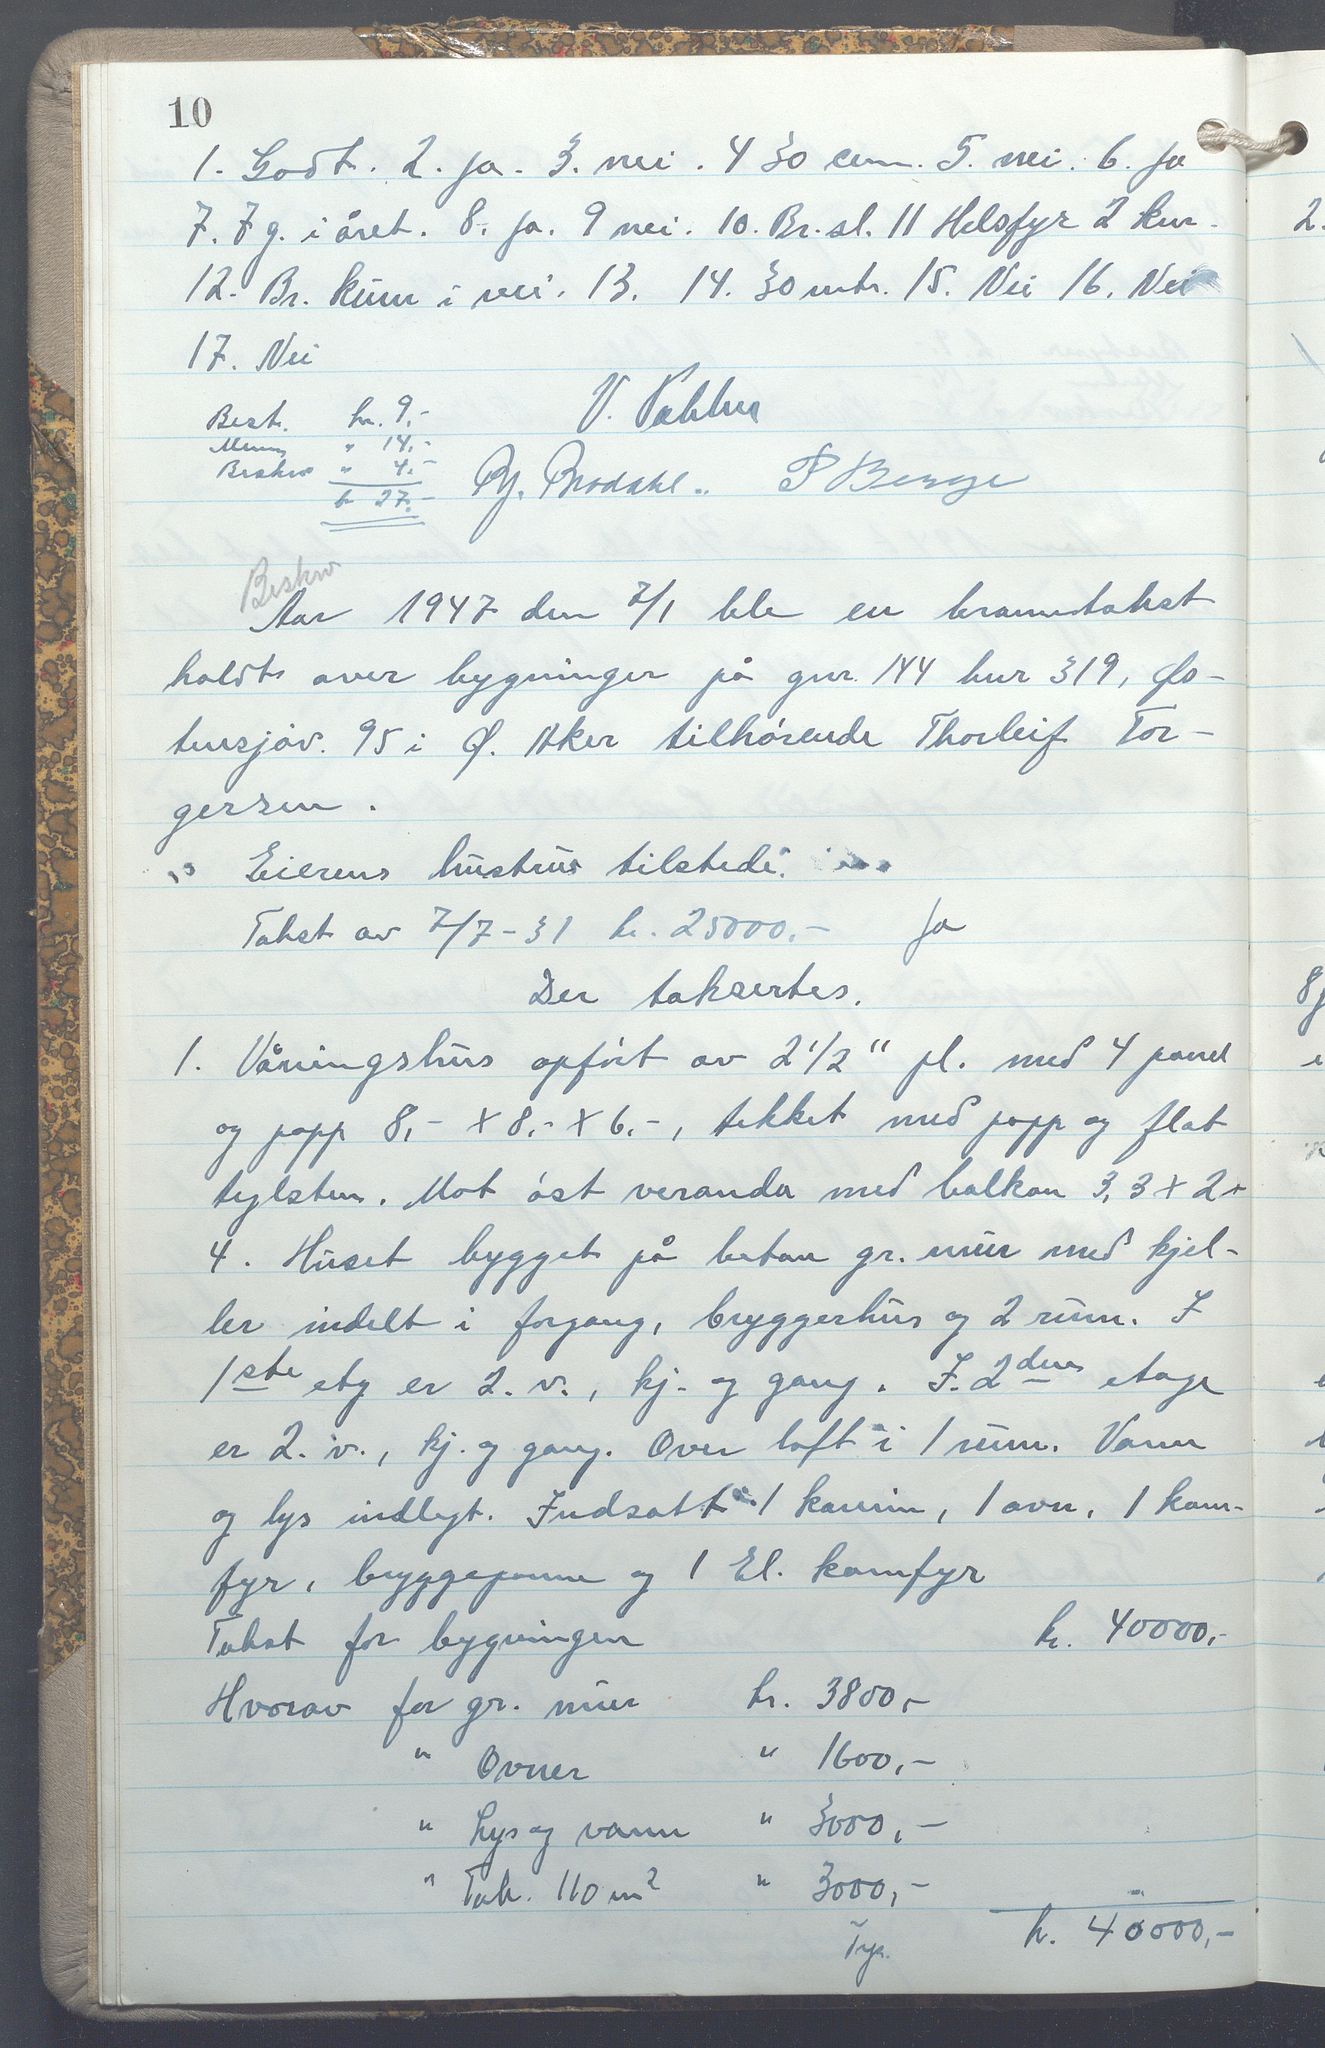 10
1. Godt. 2. Ja. 3. nei. 4 30 cm. 5. nei. 6. Ja
7. 7 g. i året. 8. Ja. 9 nei. 10. Br.sl. 11 Helsfyr 2 km.
12. Br. kum i vei. 13. 14. 30 mtr. 15. Nei 16. Nei
17. Nei
Best. kr. 9,-
" 14,-
Beskr " 4,-
kr 27,-
V.
Bj. Brodahl. P Berge
Beskr
Aar 1947 den 7/1 ble en branntakst
holdt over bygninger på gnr. 144 bnr 319, Øs-
tensjøv. 95 i Ø. Aker tilhørende Thorleif Tor-
gersen.
Eierens hustru tilstede.
Takst av 7/7-31 kr. 25000,- Ja
Der taksertes.
1. Våningshus opført av 2 1/2" pl. med 4 panel
og papp 8,- x 8,- x 6,-, tekket med papp og flat
teglsten. Mot øst veranda med balkon 3,3 x 2 x
4. Huset bygget på beton gr. mur med kjel-
ler indelt i forgang, bryggerhus og 2 rum. I
1ste etg er 2. v., kj. og gang. I. 2den etage
er 2. v., kj. og gang. Over loft i 1 rum. Vann
og lys indlegt. Indsatt 1 kamin, 1 ovn, 1 kom-
fyr, bryggepanne og 1 El. komfyr
Takst for bygningen kr. 40000,-
Hvorav for gr. mur kr. 3800,-
" Ovner " 1600,-
" Lys og vann " 3000,-
" Tak. 110 m2 " 3000,-
kr. 40000,-